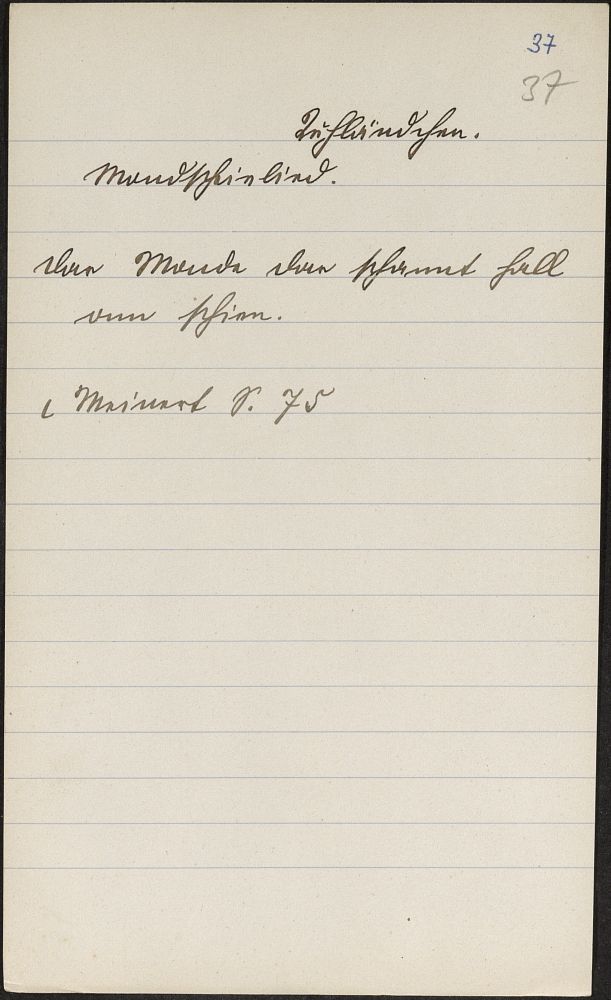 37
37
Kuhländchen.
Mondscheinlied.
Dar Monde dar schännt hall
onn schien.
Meinert S. 75